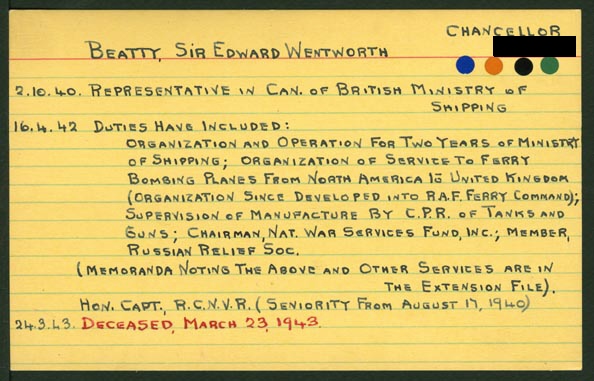 CHANCELLOR
BEATTY, SIR EDWARD WENTWORTH
2.10.40. REPRESENTATIVE IN CAN. OF BRITISH MINISTRY OF
SHIPPING
16.4.42 DUTIES HAVE INCLUDED:
ORGANIZATION AND OPERATION FOR TWO YEARS OF MINISTRY
OF SHIPPING; ORGANIZATION OF SERVICE TO FERRY
BOMBING PLANES FROM NORTH AMERICA TO UNITED KINGDOM
(ORGANIZATION SINCE DEVELOPED INTO R.A.F. FERRY COMMAND);
SUPERVISION OF MANUFACTURE BY C.P.R. OF TANKS AND
GUNS; CHAIRMAN, NAT. WAR SERVICES FUND, INC.; MEMBER,
RUSSIAN RELIEF SOC.
(MEMORANDA NOTING THE ABOVE AND OTHER SERVICES ARE IN
THE EXTENSION FILE).
HON. CAPT., R.C.N.V.R. (SENIORITY FROM AUGUST 17, 1940)
24.3.43. DECEASED, MARCH 23, 1943.